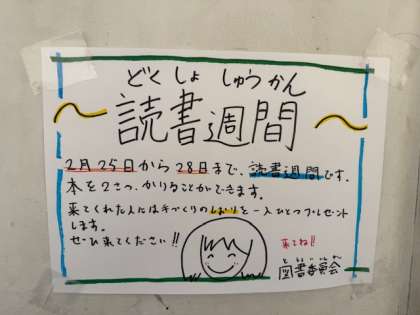 どくしょ しゅうかん
〜読書週間〜
2月25日から28日まで、読書週間です。
本を2さつ、かりることができます。
来てくれた人には手づくりのしおりを一人ひとつプレゼント
します。
ぜひ来てください!!
来てね!!
としょいいんかい
図書委員会